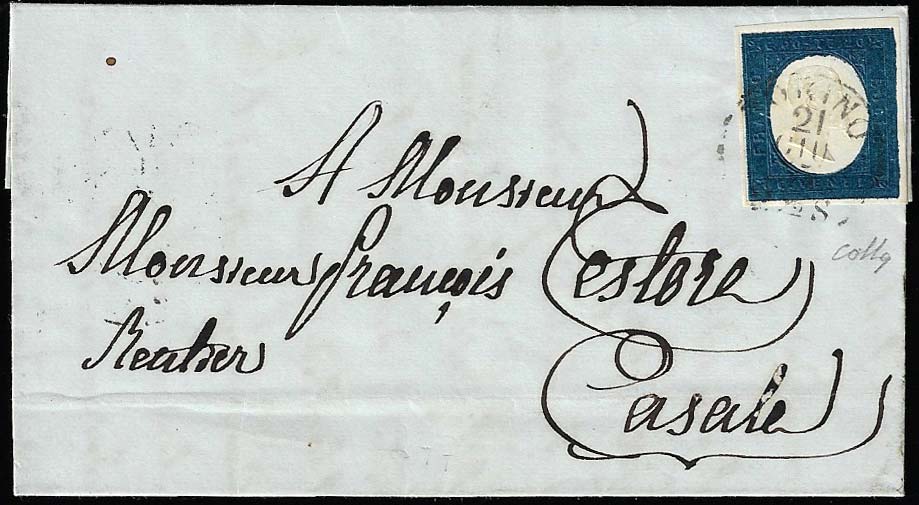 TORINO
21
GIU
A Monsieur
Monsieur François Cestore
Rentier
Casale